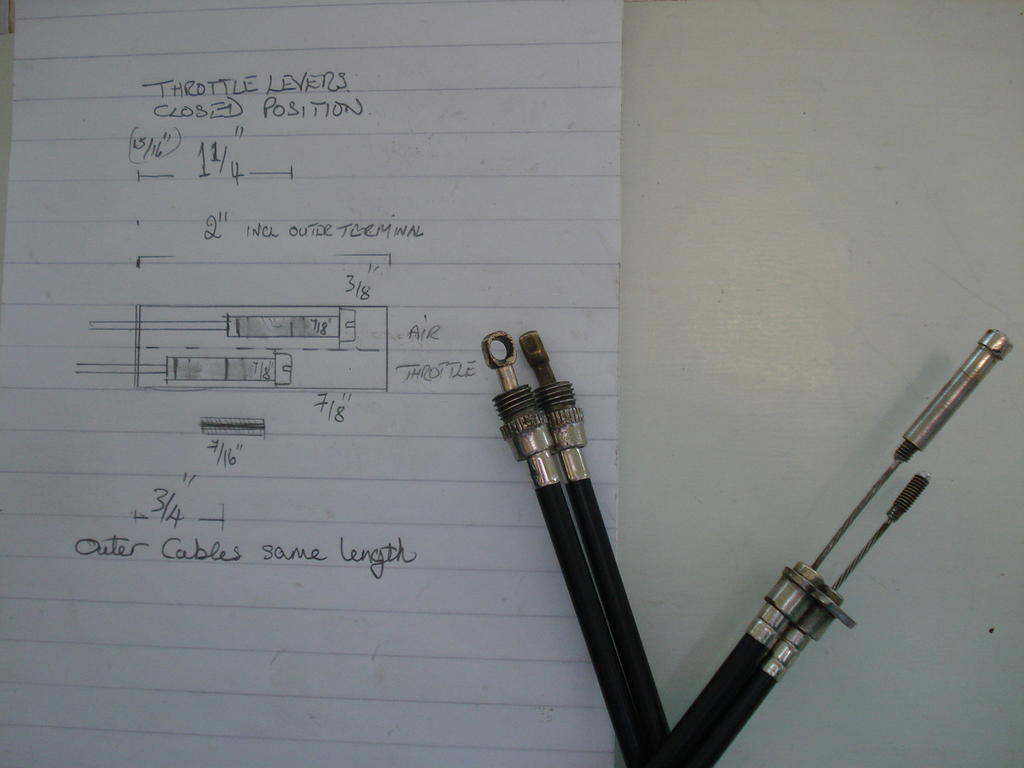 THROTTLE LEVERS
CLOSED POSITION.
(15/16") 1 1/4"
2" INCL OUTER TERMINAL
3/8"
7/8" AIR
7/8" THROTTLE
7/8"
7/16"
3/4"
Outer Cables same length